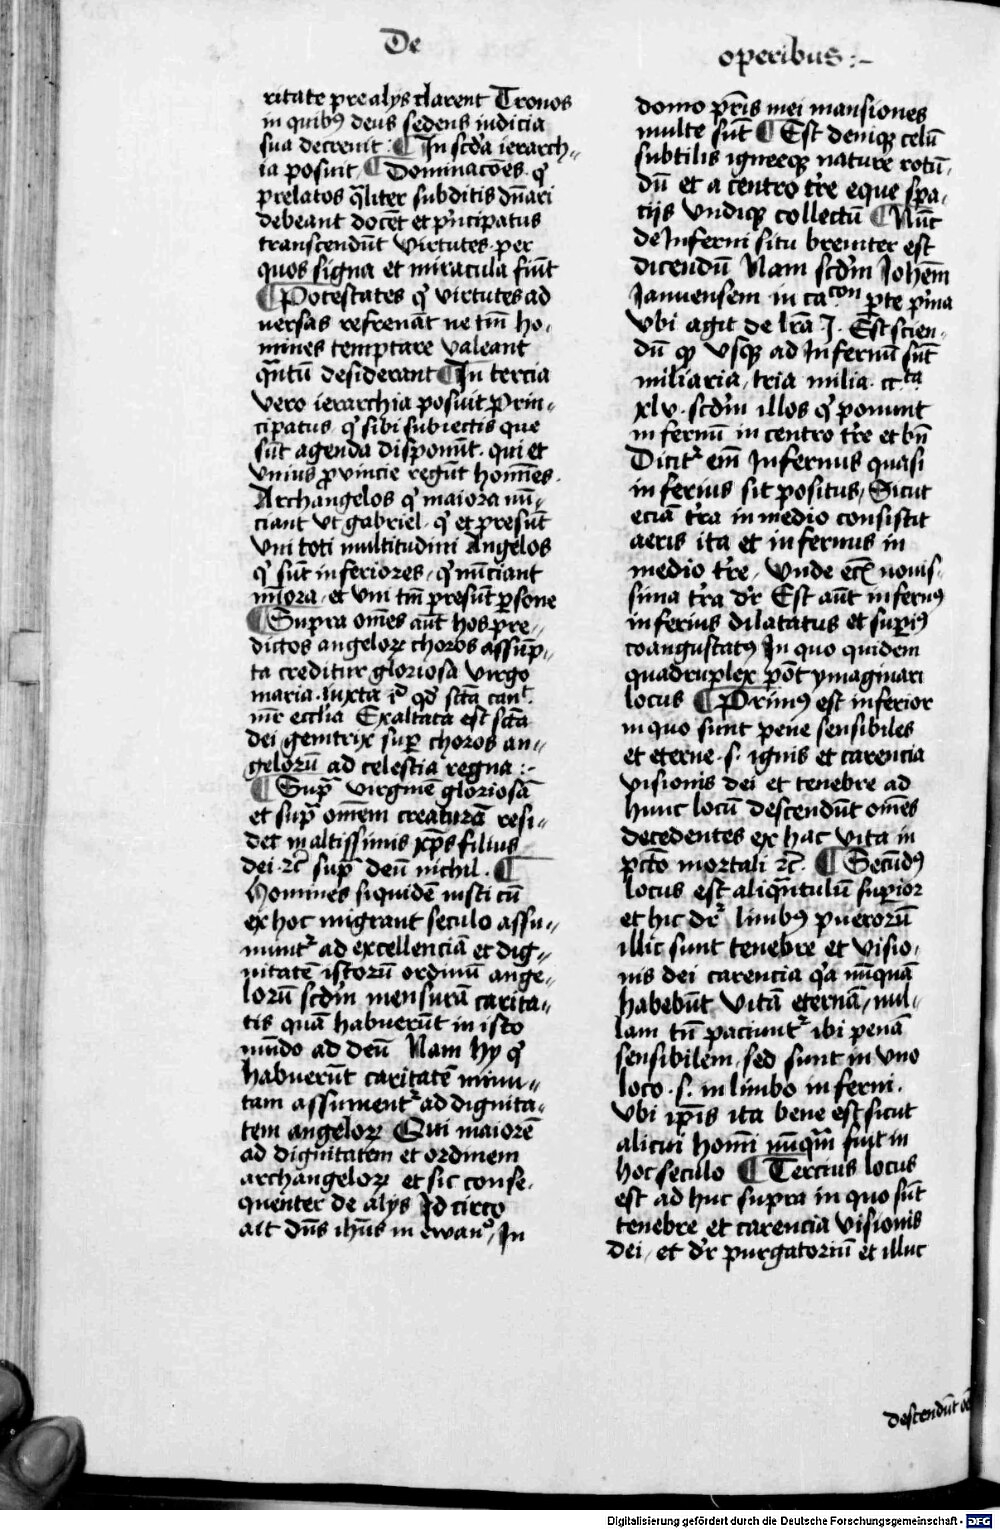 De operibus :-
ritate prealys clarent Tronos
in quibꝰ deus sedens iudicia
sua decreuit : ¶ In scd̄a ierarch-
ia posuit / ¶ Dominacōes . q̇
prelatos qͣliter subditis dn̄ari
debeant docēt et pͥncipatus
transcendūt Virtutes . per
quos signa et miracula fiūt
¶ Potestates q̇ virtutes ad
uersas refrenāt ne tm̄ ho-
mines temptare valeant
qͣntū desiderant ¶ In tercia
vero ierarchia posuit Prin-
cipatus q̇ sibi subiectis que
sūt agenda disponūt . qui et
vnius ꝓvincie regūt homīes .
Archangelos q̇ maiora nū-
ciant vt gabriel . q̇ et presūt
vni toti multitudini Angelos
q̇ sūt inferiores / q̇ nūciant
minora / et vni tm̄ presūt ꝑsone
¶ Supra om̄es aūt hos pre-
dictos angeloꝝ choros assūp-
ta creditur gloriosa virgo
maria . iuxta id qd̄ scā can
ecclīa Exaltata est scā
dei genitrix suꝑ choros an-
gelorū ad celestia regna :-
¶ Supͣ virginē gloriosā
et supͣ om̄em creaturā resi-
det in altissimis xp̄s filius
dei . ꝛc̄ supͣ deū nichil . ¶
Homines siquidē iusti cū
ex hoc migrant seculo assu-
muntᷣ ad excellenciā et dig-
nitatē istorū ordinū ange-
lorū scdm̄ mensurā carita-
tis quā habuerūt in isto
mūdo ad deū Nam hy q̇
habuerūt caritatē minu-
tam assumentᷣ ad dignita-
tem angeloꝝ Qui maiorē
ad dignitatem et ordinem
archangeloꝝ et sic conse-
quenter de alys Id circo
ait dn̄s ihūs in ewanͦ / In
domo pr̄is mei mansiones
multe sūt ¶ Est deniqꝫ celū
subtilis igneeqꝫ nature rotū-
dū et a centro tr̄e eque spa-
ciis vndiqꝫ collectū ¶ Nūc
de Inferni situ breuiter est
dicendū Nam scdm̄ Iohem̄
Ianuensem in cacon ꝑte pͥma
vbi agit de lrā . I . Est scien-
dū ꝙ vsqꝫ ad Infernū sūt
miliaria / tria milia . cc.ta
xlv . scdm̄ illos q̇ ponunt
infernū in centro tr̄e et bn̄
Dicitᷣ em̄ Infernus quasi
inferius sit positus / Sicut
eciā tr̄a in medio consistit
aeris ita et infernus in
medio tr̄e / vnde nouis-
sima tr̄a dr̄ Est aūt infernꝰ
inferius dilatatus et supiꝰ
coangustatꝰ In quo quidem
quadruplex pōt ymaginari
locus ¶ Primꝰ est inferior
in quo sunt pene sensibiles
et eterne . s . ignis et carencia
visionis dei et tenebre ad
hunc locū descendūt om̄es
decedentes ex hac vita in
pctō mortali ꝛc̄ . ¶ Secūdꝰ
locus est aliqͣntulū supior
et hic dr̄ limbꝰ puerorū
illic sunt tenebre et visio-
nis dei carencia qͣa nūquā
habebūt vitā eternā / nul-
lam tn̄ paciuntᷣ ibi penā
sensibilem . sed sunt in vno
loco . s . in limbo inferni .
vbi ipīs ita bene est sicut
alicui homī nūqͣm fuit in
hoc seculo ¶ Tercius locus
est ad huc supra in quo sūt
tenebre et carencia visionis
dei / et dr̄ purgatoriū et illuc
descendūt
Digitalisierung gefördert durch die Deutsche Forschungsgemeinschaft - DFG